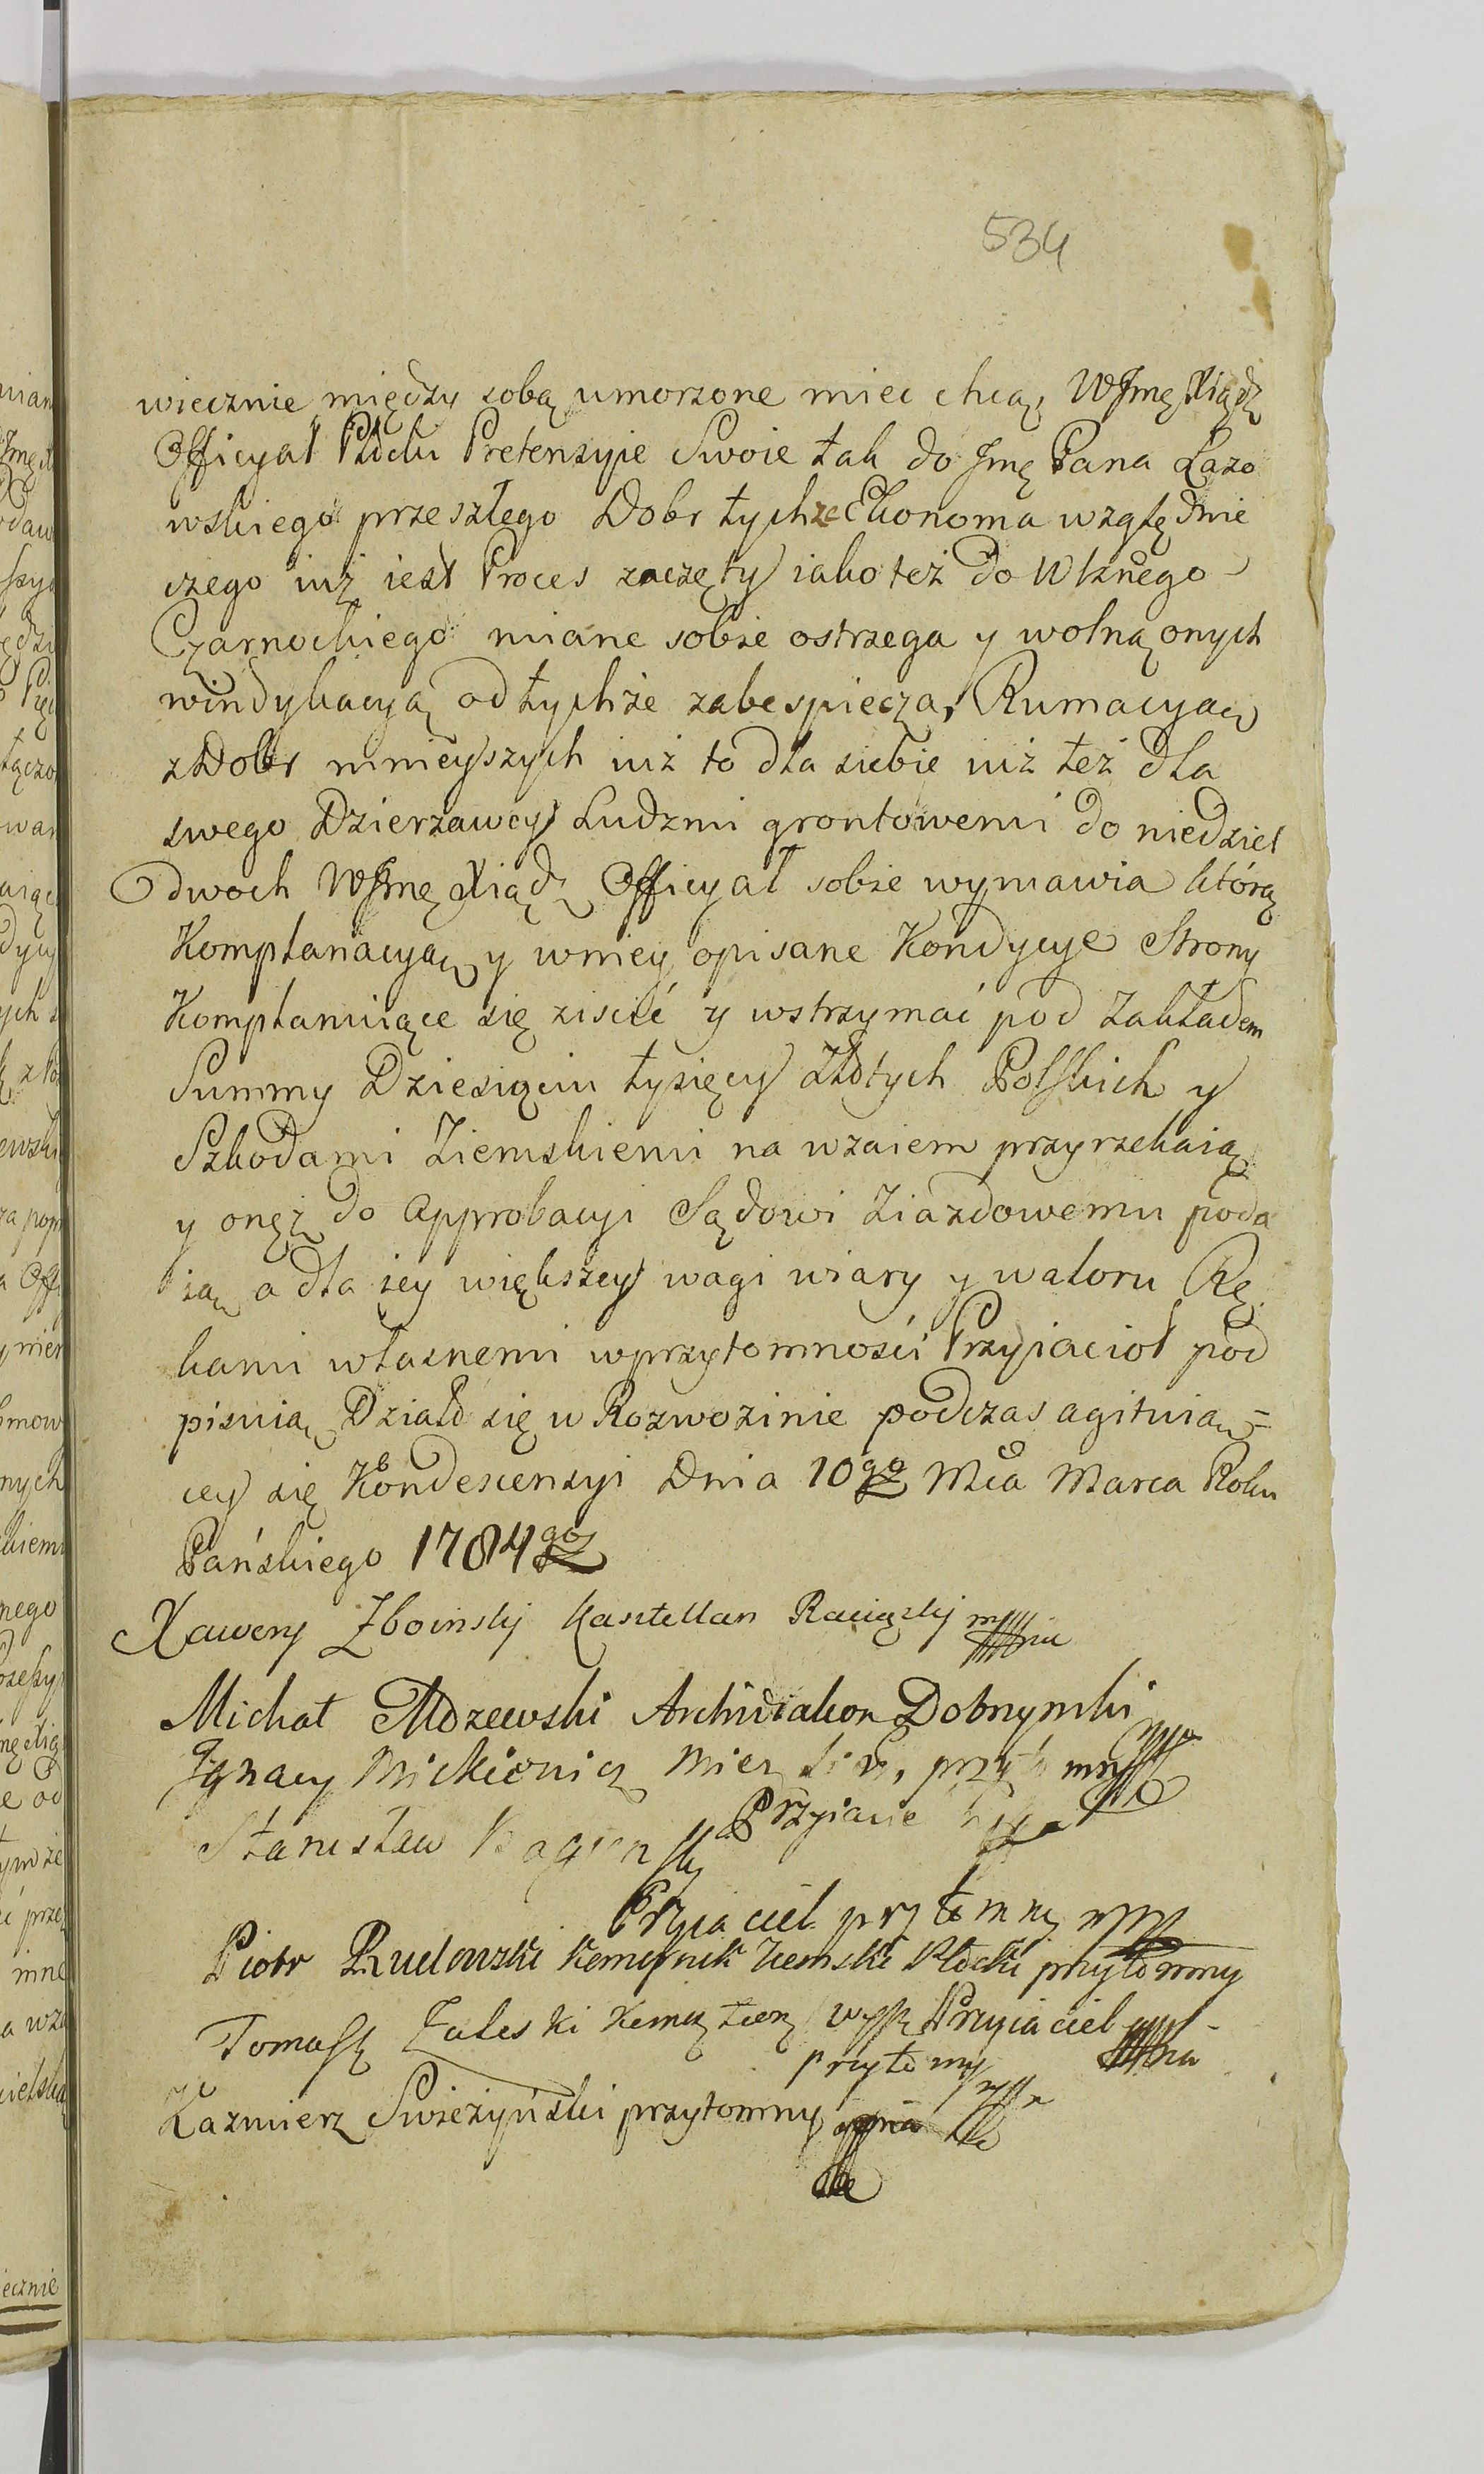 534
wiecznie między sobą umorzone miec chcą, WJmę Xiądz
Officyał Płocki Pretensyie Swoie tak do Jmę Pana Łazo
wskiego przeszłego Dobr tychże Ekonoma względnie
czego iuż iest Proces zaczęty iako też do Wżnego
Czarnockiego miane sobie ostrzega y wolną onych
windykacyą od tychże zabespiecza, Rumacyą
z Dobr ninieyszych iuż to dla siebie iuż też dla
swego Dzierzawcy Ludzmi grontowemi do niedziel
dwoch WJmę Xiądz Officyał sobie wymawia którą
Komplanacyą y wniey opisane Kondycye Strony
Komplanuiące się ziscić y wstrzymać pod Zakładem
Summy Dziesiąciu tysięcy Złotych Polskich y
Szkodami Ziemskiemi na wzaiem przyrzekaią
y onęż do Approbacyi Sądowi Ziazdowemu poda
ią, a dla iey większey wagi wiary y waloru Rę
kami własnemi wprzytomności Przyiacioł pod
pisuią Działo się w Rozwozinie podczas agituią=
cey się Kondescensyi Dnia 10go Mca Marca Roku
Pańskiego 1784go
Xawery Zboinsky Kasztellan Raciązky mppria
Michał Mdzewski Archidiakon Dobrzynski
Ignacy Mickiewicz
Przyiaciel
Stanisław
Przyiaciel przytomny mpp
Piotr Rudowski Komornik Ziemski Płocki przytomny
Tomasz Zaleski Przyiaciel
przytomny
Kazmierz Swieżyński przytomny mpria